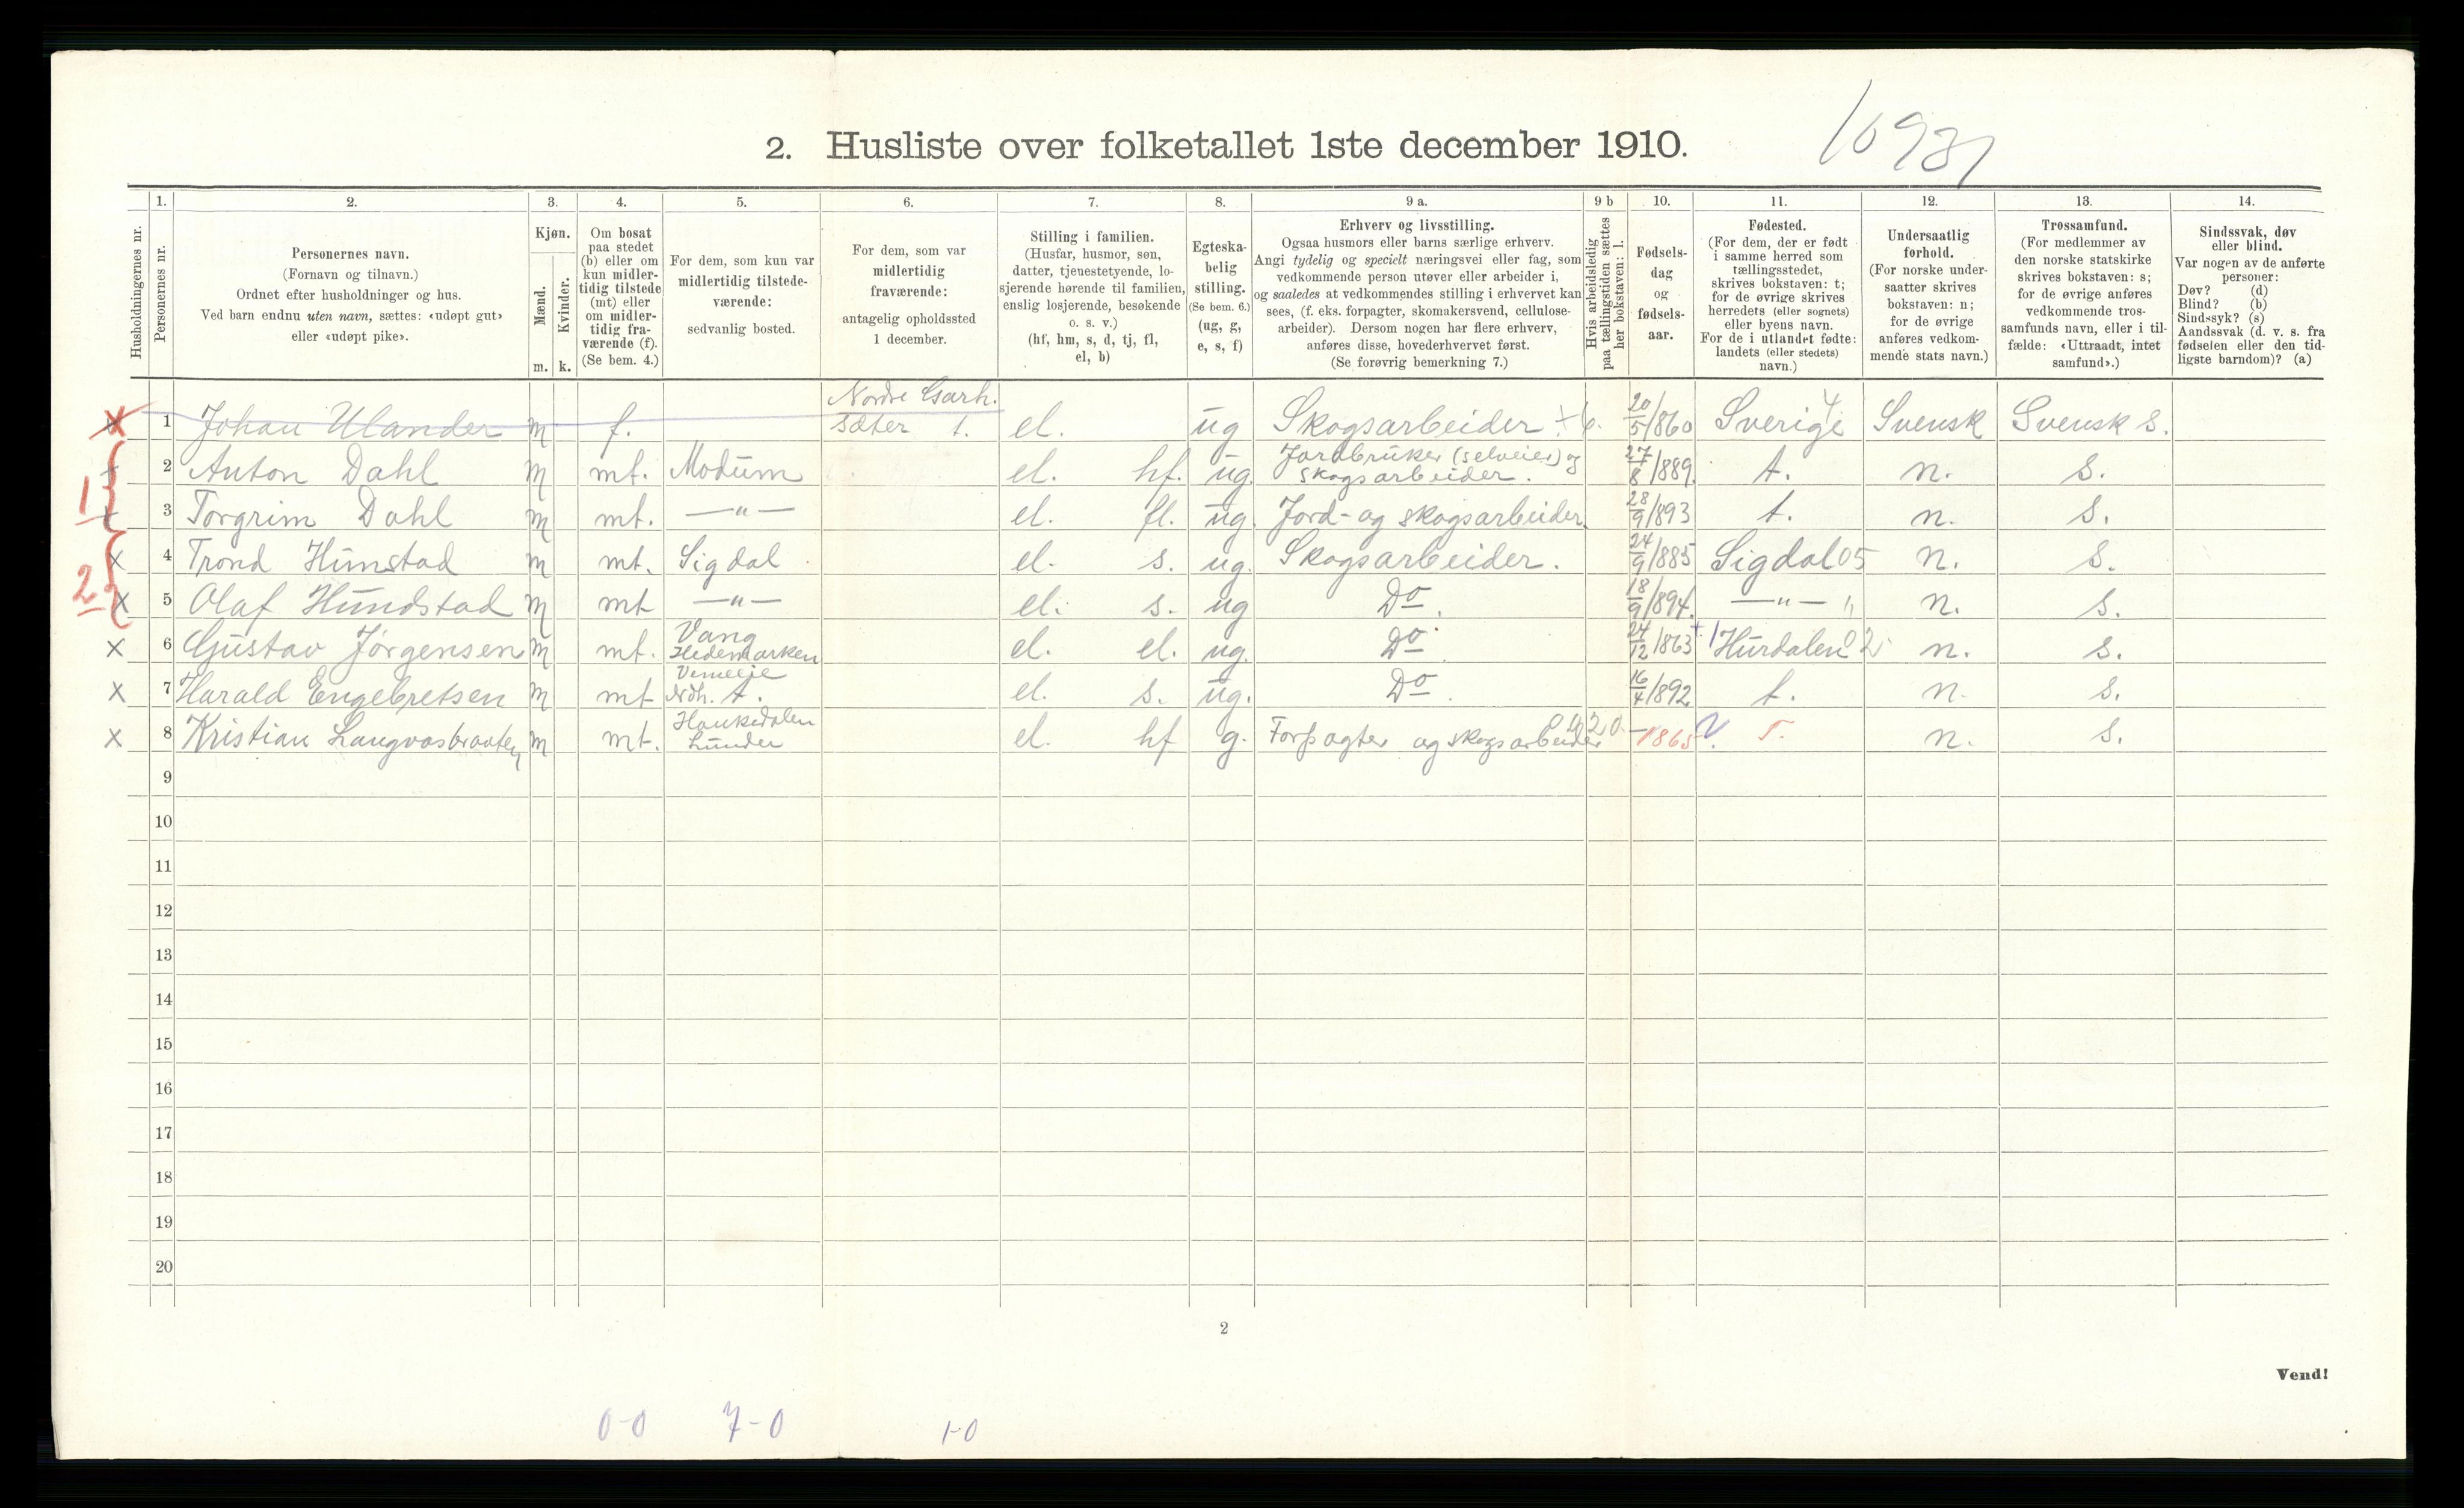 2. Husliste over folketallet 1ste december 1910.
Husholdningernes nr.
1. Personernes nr.
2. Personernes navn.
(Fornavn og tilnavn.)
Ordnet efter husholdninger og hus.
Ved barn endnu uten navn, sættes: «udøpt gut»
eller «udøpt pike».
3. Kjøn.
Mænd. Kvinder.
m. k.
4. Om bosat
paa stedet
(b) eller om
kun midler-
tidig tilstede
(mt) eller
om midler-
tidig fra-
værende (f).
(Se bem. 4.)
5. For dem, som kun var
midlertidig tilstede-
værende:
sedvanlig bosted.
6. For dem, som var
midlertidig
fraværende:
antagelig opholdssted
1 december.
7. Stilling i familien.
(Husfar, husmor, søn,
datter, tjenestetyende, lo-
sjerende hørende til familien,
enslig losjerende, besøkende
o. s. v.)
(hf, hm, s, d, tj, fl,
el, b)
8. Egteska-
belig
stilling.
(Se bem. 6.)
(ug, g,
e, s, f)
9 a. Erhverv og livsstilling.
Ogsaa husmors eller barns særlige erhverv.
Angi tydelig og specielt næringsvei eller fag, som
vedkommende person utøver eller arbeider i,
og saaledes at vedkommendes stilling i erhvervet kan
sees, (f. eks. forpagter, skomakersvend, cellulose-
arbeider). Dersom nogen har flere erhverv,
anføres disse, hovederhvervet først.
(Se forøvrig bemerkning 7.)
9 b Hvis arbeidsledig
paa tællingstiden sættes
her bokstaven: l.
10. Fødsels-
dag
og
fødsels-
aar.
11. Fødested.
(For dem, der er født
i samme herred som
tællingsstedet,
skrives bokstaven: t;
for de øvrige skrives
herredets (eller sognets)
eller byens navn.
For de i utlandet fødte:
landets (eller stedets)
navn.)
12. Undersaatlig
forhold.
(For norske under-
saatter skrives
bokstaven: n;
for de øvrige
anføres vedkom-
mende stats navn.)
13. Trossamfund.
(For medlemmer av
den norske statskirke
skrives bokstaven: s;
for de øvrige anføres
vedkommende tros-
samfunds navn, eller i til-
fælde: «Uttraadt, intet
samfund».)
14. Sindssvak, døv
eller blind.
Var nogen av de anførte
personer:
Døv? (d)
Blind? (b)
Sindssyk? (s)
Aandssvak (d. v. s. fra
fødselen eller den tid-
ligste barndom)? (a)
1 Johan Ulander m f. Nordre Garh. sæter t. el. ug Skogsarbeider 20/5/860 Sverige 4 Svensk Svensk s.
2 Anton Dahl m mt. Modum el. hf. ug. Jordbruker (selveier) og skogsarbeider. 27/8/889 t. n. s.
3 Torgrim Dahl m mt. —"— el. fl. ug. Jord- og skogsarbeider. 28/9/893 t. n. s.
4 Trond Himstad m mt. Sigdal el. s. ug. Skogsarbeider. 24/9/885 Sigdal 05 n. s.
5 Olaf Hundstad m mt —"— el. s. ug Do. 18/9/894. —"— " n. s.
6 Gustav Jørgensen m mt. Vang Hedemarken el. el. ug. Do. 24/12/863 Hurdalen 02 n. s.
7 Harald Engebretsen m mt Ndh. t. el. s. ug. Do. 16/4/892 t. n. s.
8 Kristian Langvasbraaten m mt. Haukedalen Lunder el. hf g. Forpagter og skogsarbeider — 1865 T. n. s.
9
10
11
12
13
14
15
16
17
18
19
20
2
Vend!
0-0 7-0 1-0